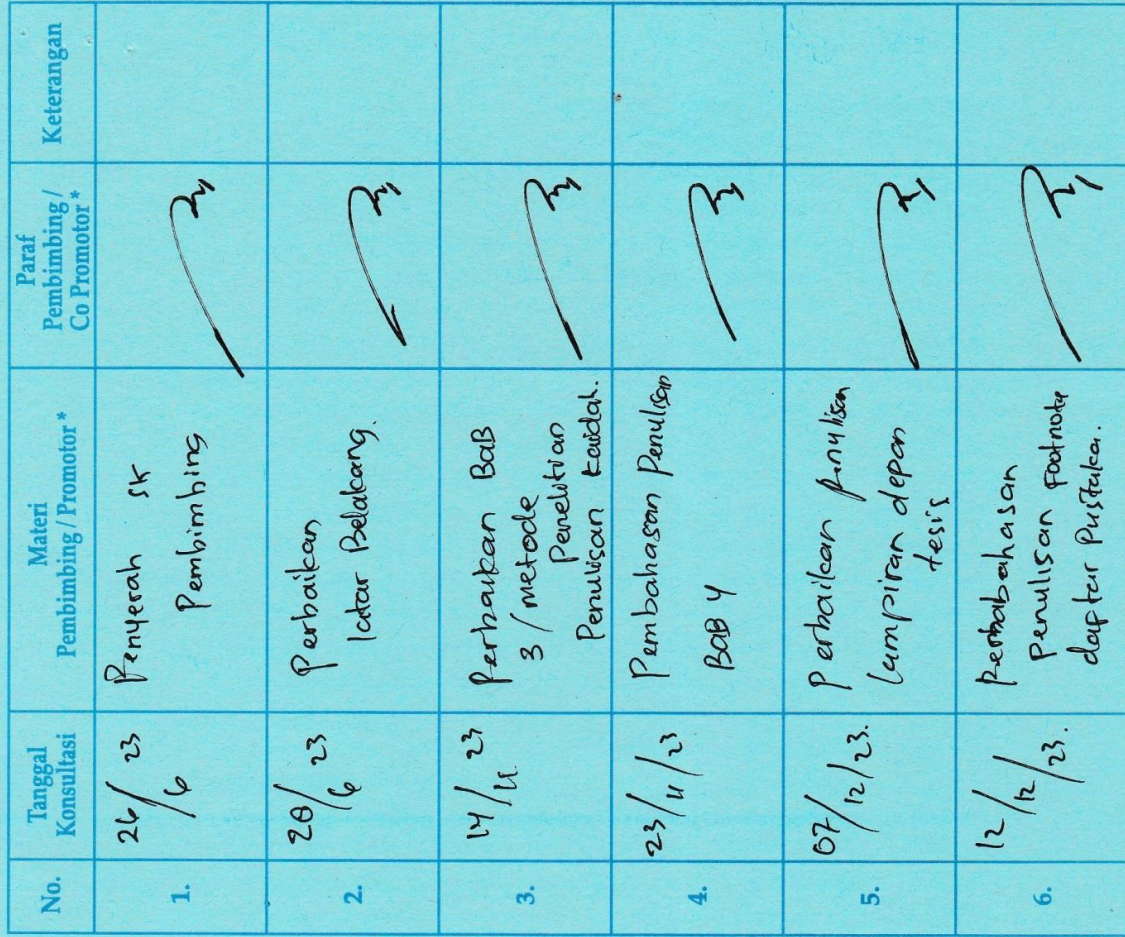 No.
Tanggal
Konsultasi
Materi
Pembimbing / Promotor *
Paraf
Pembimbing /
Co Promotor *
Keterangan
1.
26/6 23
Penyerah SK
Pembimbing
2.
28/6 23
Perbaikan
latar Belakang.
3.
14/11 23
Perbaikan BaB
3/metode
Penelitian
Penulisan kaidah.
4.
23/11/23
Pembahasan Penulisan
BaB 4
5.
07/12/23.
Perbaikan penulisan
lampiran depan
tesis
6.
12/12/23.
Penulisan Footnote
daftar Pustaka.